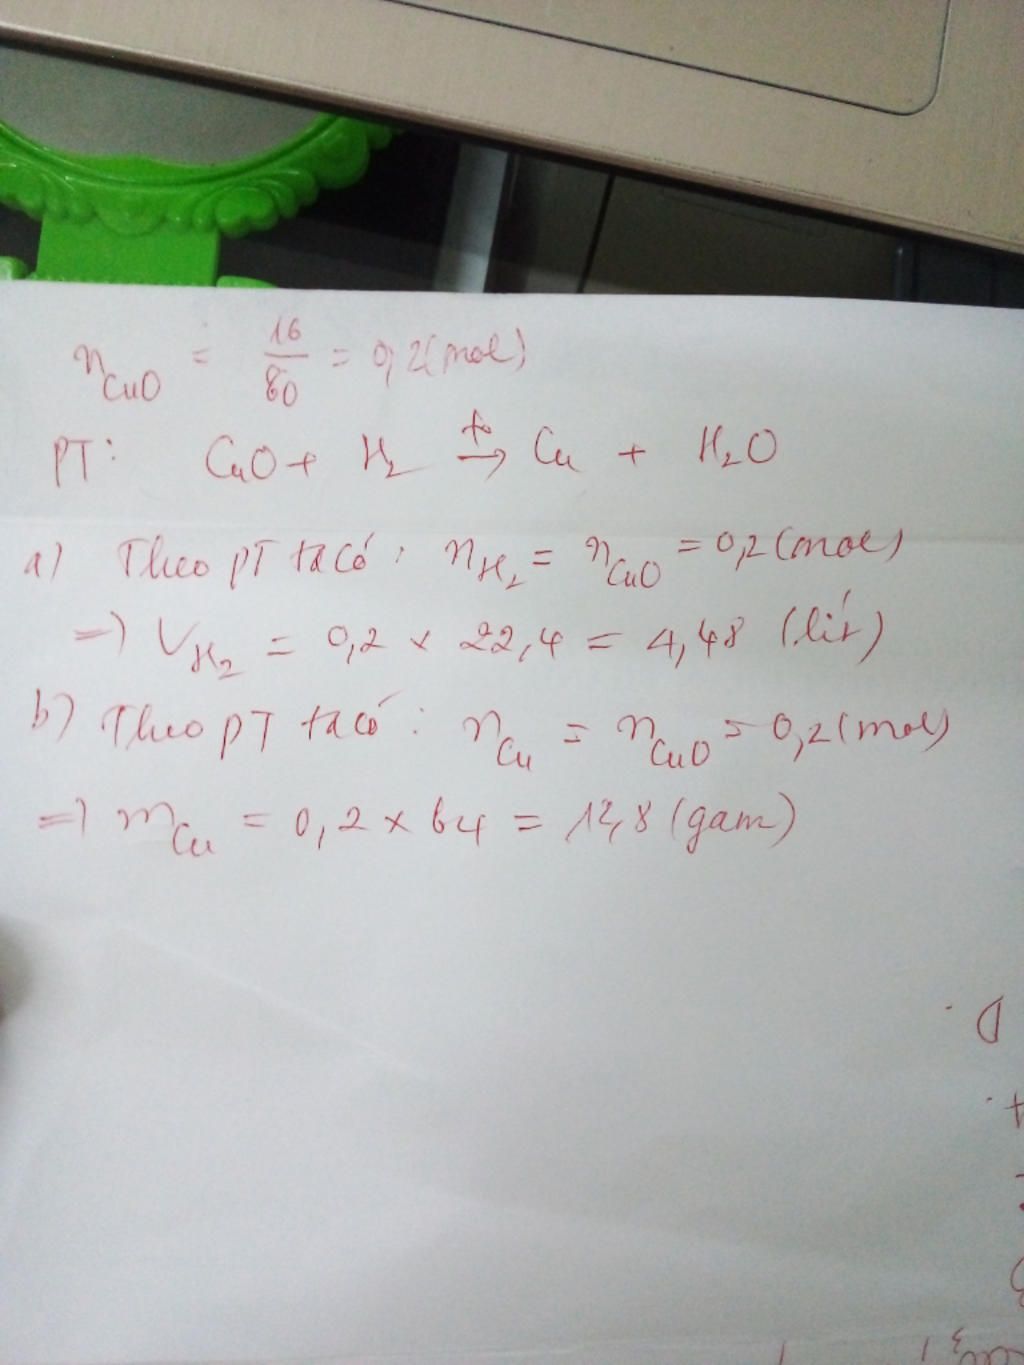 n CuO = 16/80 = 0,2 (mol)
PT: CuO + H2 t° → Cu + H2O
a) Theo PT ta có: n H2 = n CuO = 0,2 (mol)
=) V H2 = 0,2 x 22,4 = 4,48 (lít)
b) Theo PT ta có: n Cu = n CuO = 0,2 (mol)
=) m Cu = 0,2 x 64 = 12,8 (gam)